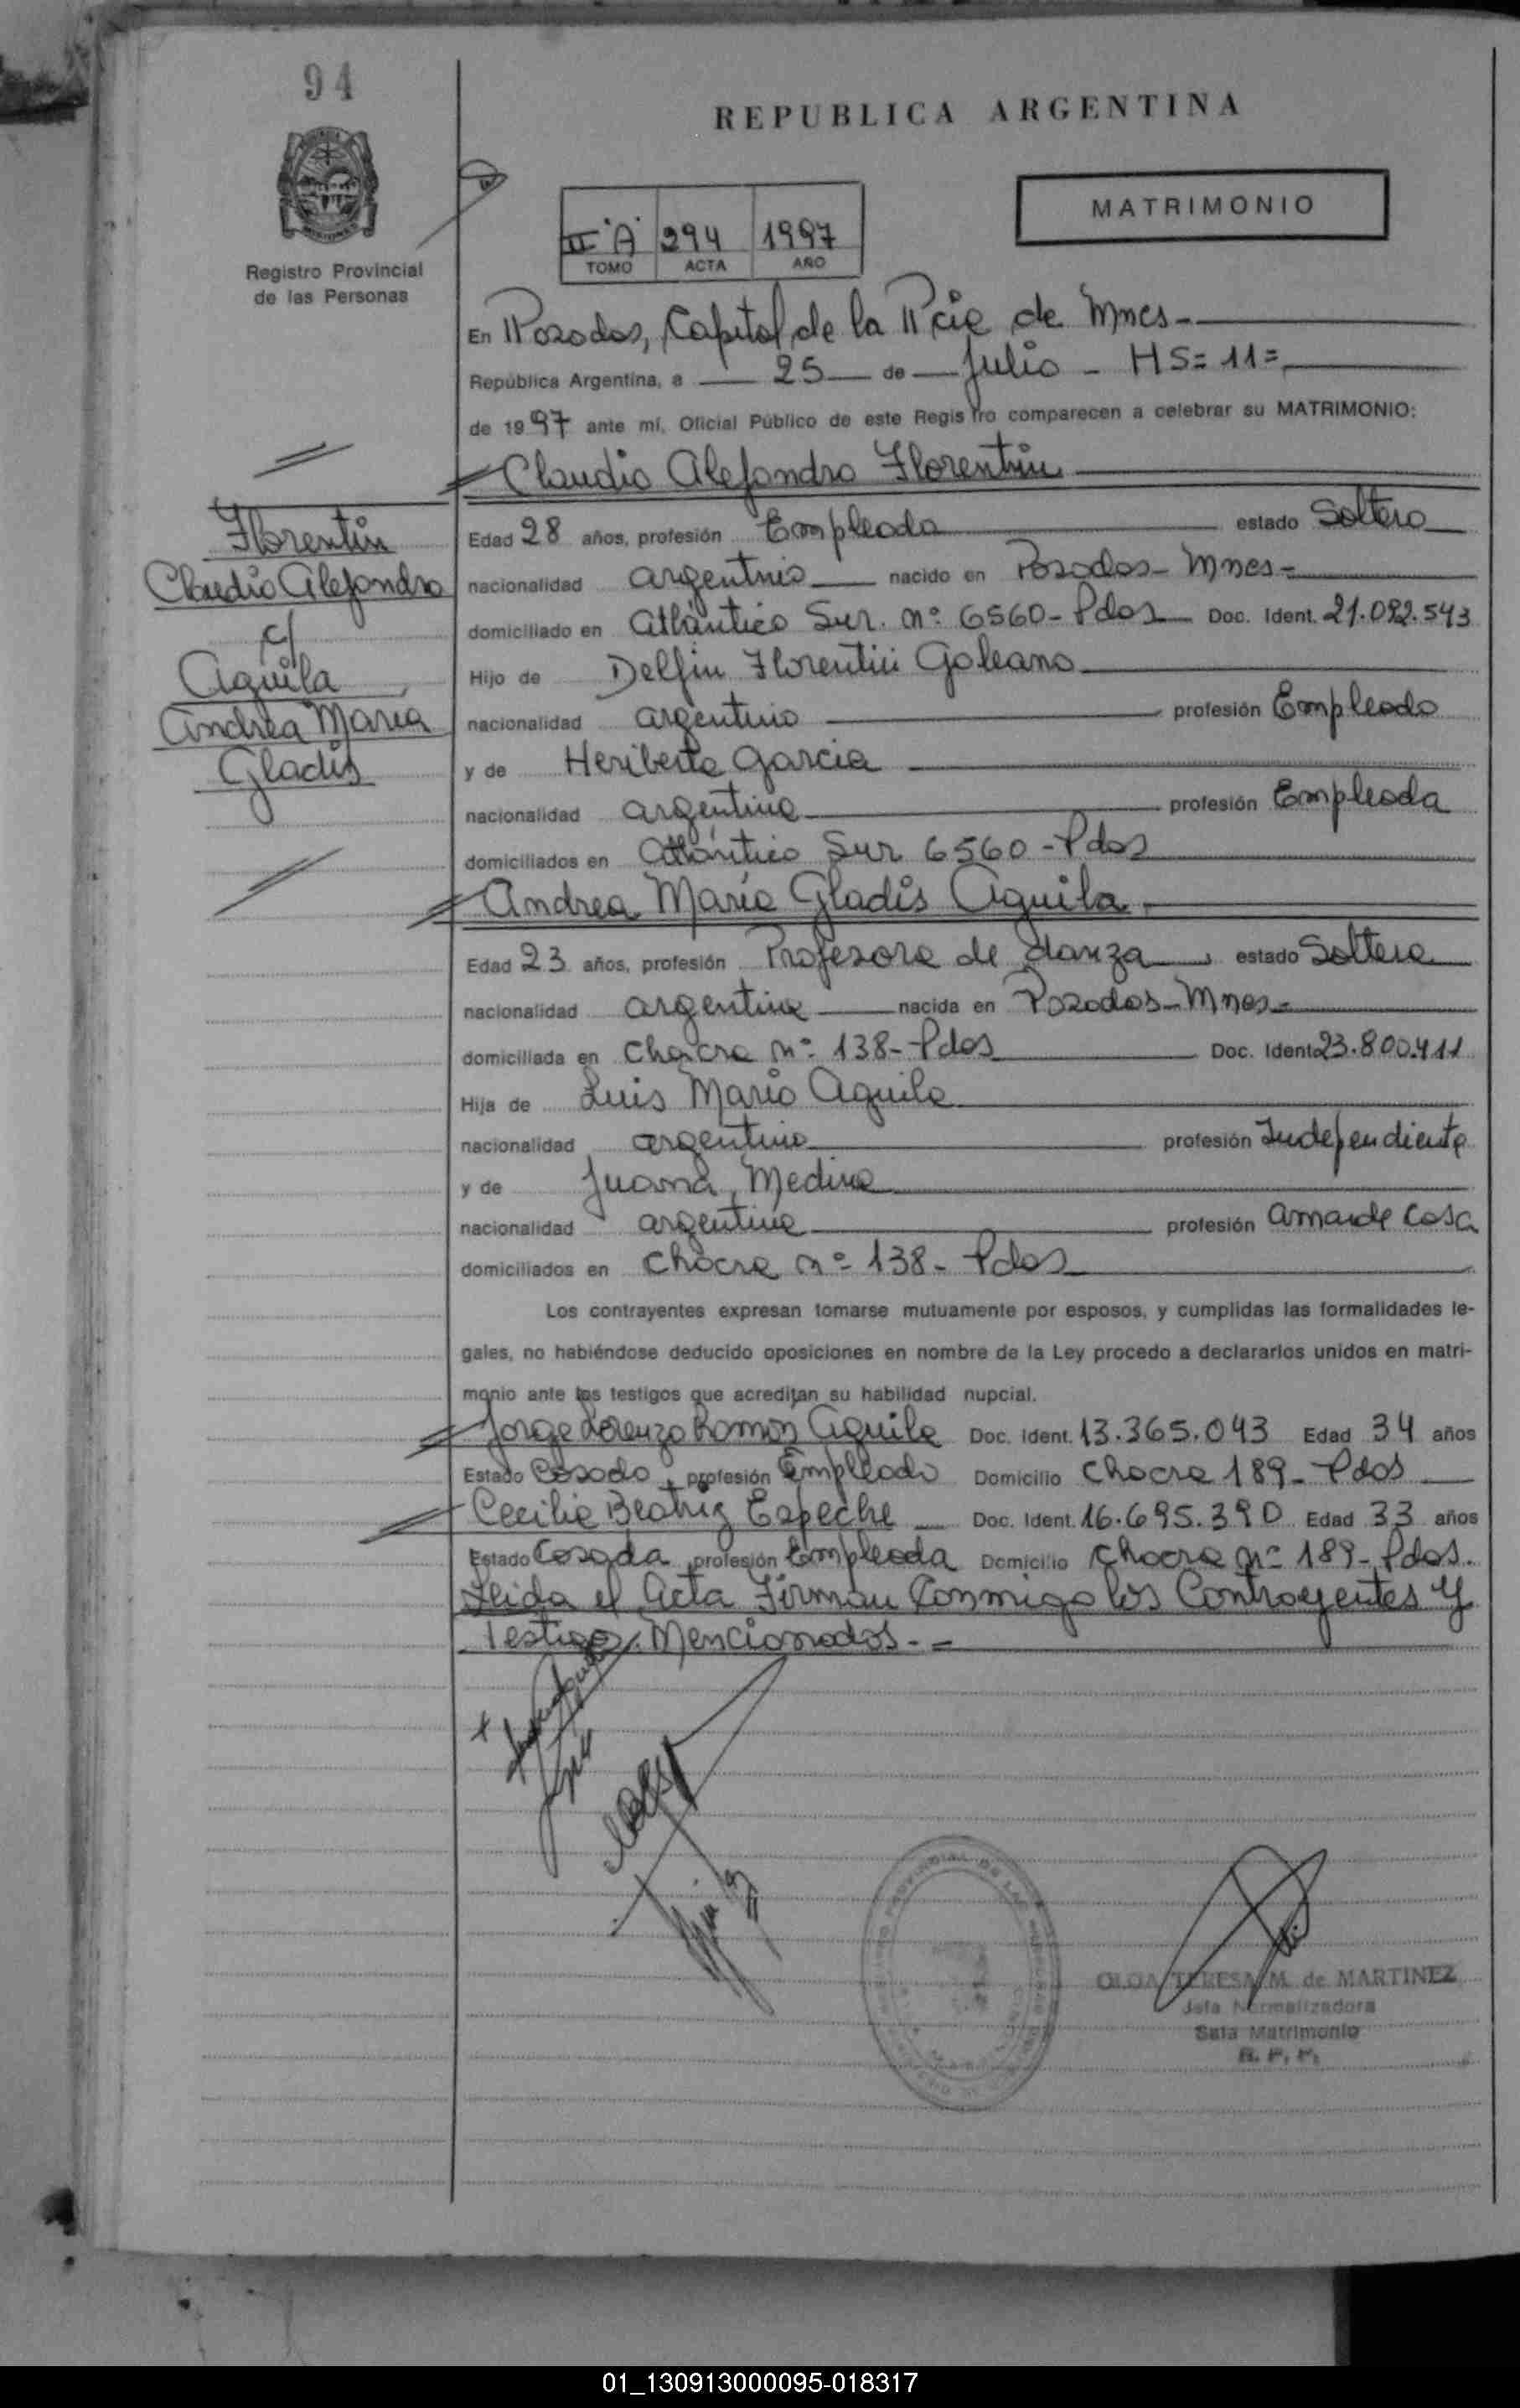 94
REPUBLICA ARGENTINA
MATRIMONIO
Registro Provincial
de las Personas
II "A" 294 1997
TOMO ACTA AÑO
En Posadas, Capital de la Pcia de Mnes-
República Argentina, a 25 de Julio - HS= 11=
de 1997 ante mí, Oficial Público de este Registro comparecen a celebrar su MATRIMONIO:
Claudio Alejandro Florentin
Florentin
Claudio Alejandro
c/
Aguila
Andrea Maria
Gladis
Edad 28 años, profesión Empleado estado Soltero
nacionalidad argentino nacido en Posadas- Mnes-
domiciliado en Atlántico Sur. nº 6560- Pdas Doc. Ident. 21.092.543
Hijo de Delfin Florentin Galeano
nacionalidad argentino profesión Empleado
y de Heriberta Garcia
nacionalidad argentina profesión Empleada
domiciliados en Atlántico Sur 6560- Pdas
Andrea María Gladis Aguila
Edad 23 años, profesión Profesora de danza estado Soltera
nacionalidad argentina nacida en Posadas- Mnes-
domiciliada en Chacra nº 138- Pdas Doc. Ident. 23.800.411
Hija de Luis Mario Aguila
nacionalidad argentino profesión Independiente
y de Juana Medina
nacionalidad argentina profesión ama de casa
domiciliados en Chacra nº 138- Pdas
Los contrayentes expresan tomarse mutuamente por esposos, y cumplidas las formalidades le-
gales, no habiéndose deducido oposiciones en nombre de la Ley procedo a declararlos unidos en matri-
monio ante los testigos que acreditan su habilidad nupcial.
Jorge Lorenzo Ramon Aguila Doc. Ident. 13.365.043 Edad 34 años
Estado Casado, profesión Empleado Domicilio Chacra 189- Pdas
Cecilia Beatriz Espeche Doc. Ident. 16.695.390 Edad 33 años
Estado Casada profesión Empleada Domicilio Chacra nº 189- Pdas.
Leida el Acta Firman Conmigo los Contrayentes y
Testigos Mencionados.-
OLGA TERESA M. de MARTINEZ
Jefa Normalizadora
Sala Matrimonio
R. P. P.
01_130913000095-018317